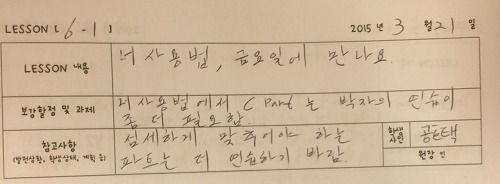 LESSON [ 6-1 ] 2015 년 3 월 21 일
LESSON 내용 너 사용법, 금요일에 만나요.
보강할점 및 과제 너 사용법에서 C part 는 박자의 연습이
좀 더 필요함.
참고사항 섬세하게 맞춰어야 하는 학생 사인 공태택
(발전상황, 학생상태, 계획 등) 파트는 더 연습하기 바람. 원장 인